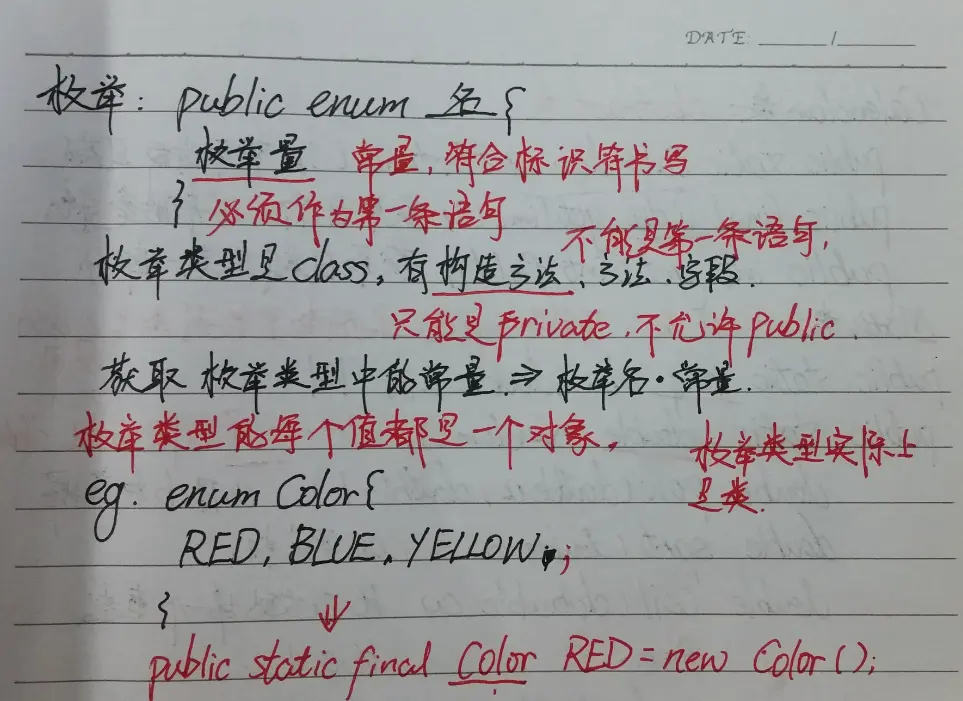 DATE: ______/______
枚举: public enum 名{
枚举量 常量,符合标识符书写
} 必须作为第一条语句
不能是第一条语句,
枚举类型是class,有构造方法、方法、字段.
只能是private,不允许public.
获取枚举类型中的常量. ⇒ 枚举名·常量.
枚举类型的每个值都是一个对象,
枚举类型实际上
是类.
eg. enum Color{
RED, BLUE, YELLOW;
}
⇓
public static final Color RED = new Color();